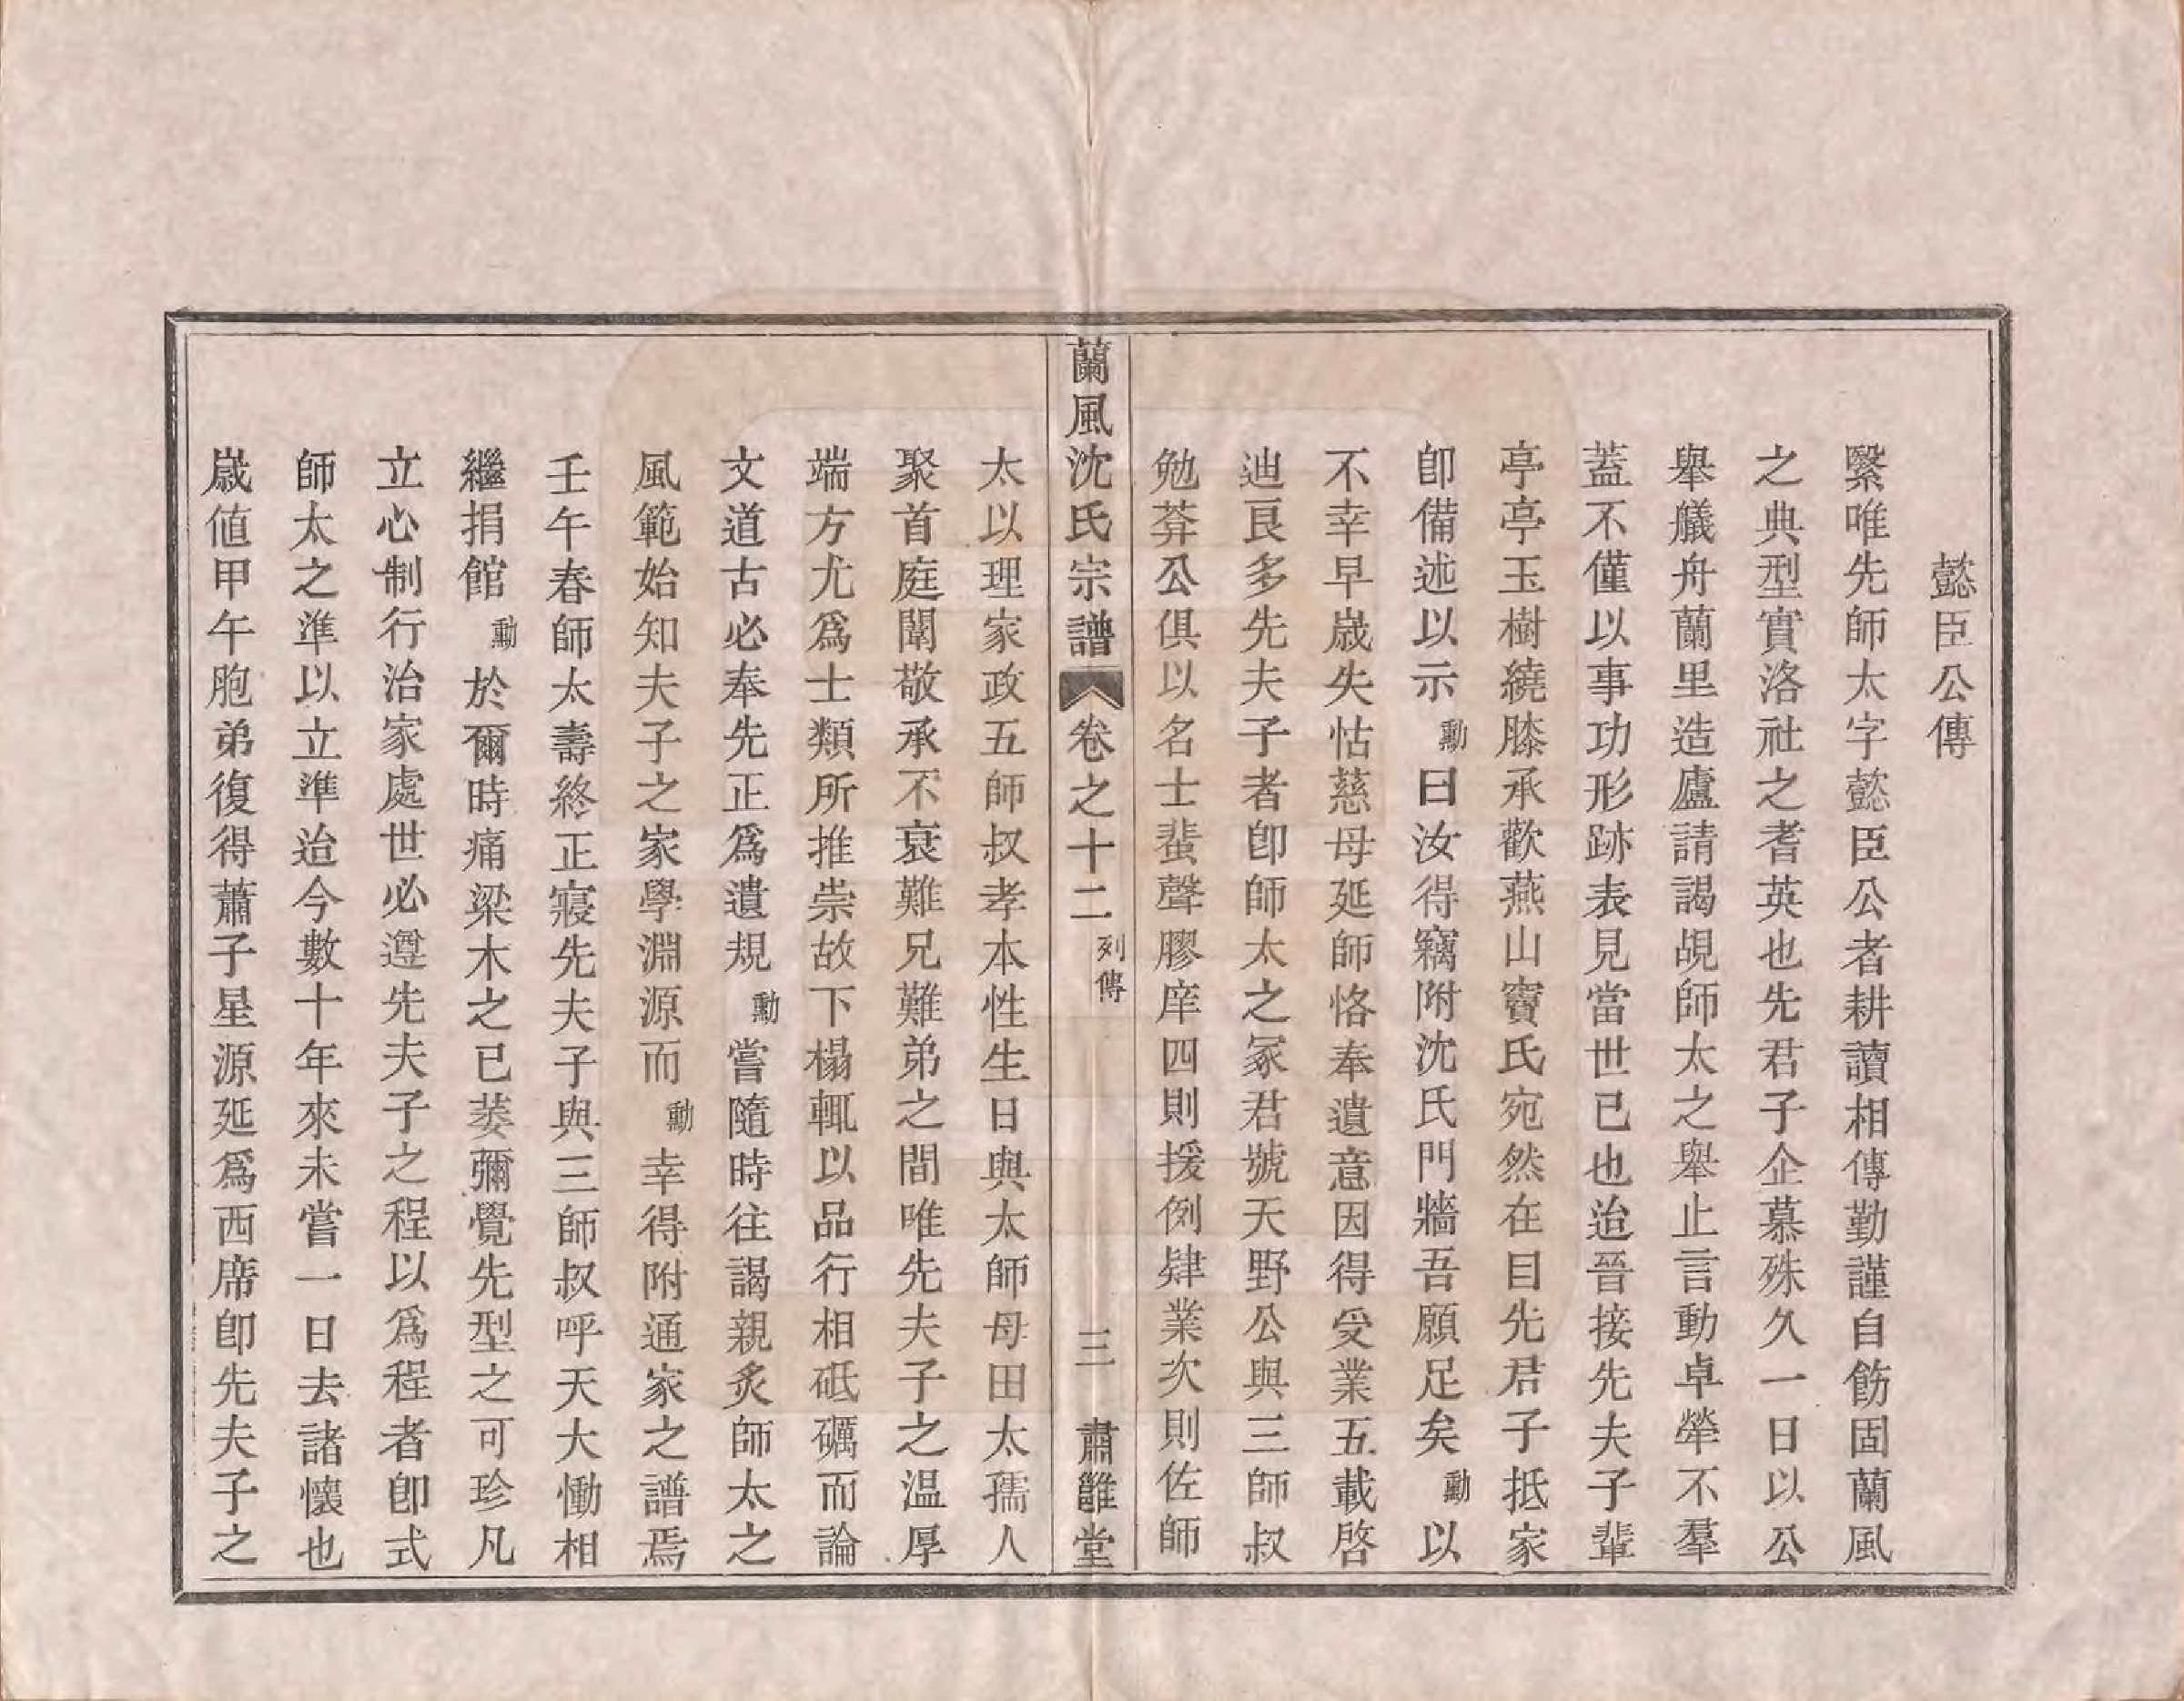 懿臣公傳
緊唯先師太字懿臣公者耕讀相傳勤謹自飭固蘭風
之典型實洛社之耆英也先君子企慕殊久一日以公
舉艤舟蘭里造廬請謁覘師太之舉止言動卓犖不羣
蓋不僅以事功形跡表見當世已也迨晉接先夫子輩
亭亭玉樹繞膝承歡燕山竇氏宛然在目先君子抵家
卽備述以示勳曰汝得竊附沈氏門牆吾願足矣勳以
不幸早歲失怙慈母延師恪奉遺意因得受業五載啓
迪良多先夫子者卽師太之冢君號天野公與三師叔
勉莽公俱以名士蜚聲膠庠四則援例肄業次則佐師
蘭風沈氏宗譜 卷之十二 列傳 三 肅雝堂
太以理家政五師叔孝本性生日與太師母田太孺人
聚首庭闈敬承不衰難兄難弟之間唯先夫子之温厚
端方尤爲士類所推崇故下榻輒以品行相砥礪而論
文道古必奉先正爲遺規勳嘗隨時往謁親炙師太之
風範始知夫子之家學淵源而勳幸得附通家之譜焉
壬午春師太壽終正寢先夫子與三師叔呼天大慟相
繼捐館勳於爾時痛梁木之已萎彌覺先型之可珍凡
立心制行治家處世必遵先夫子之程以爲程者卽式
師太之準以立準迨今數十年來未嘗一日去諸懷也
歲値甲午胞弟復得蕭子星源延爲西席卽先夫子之